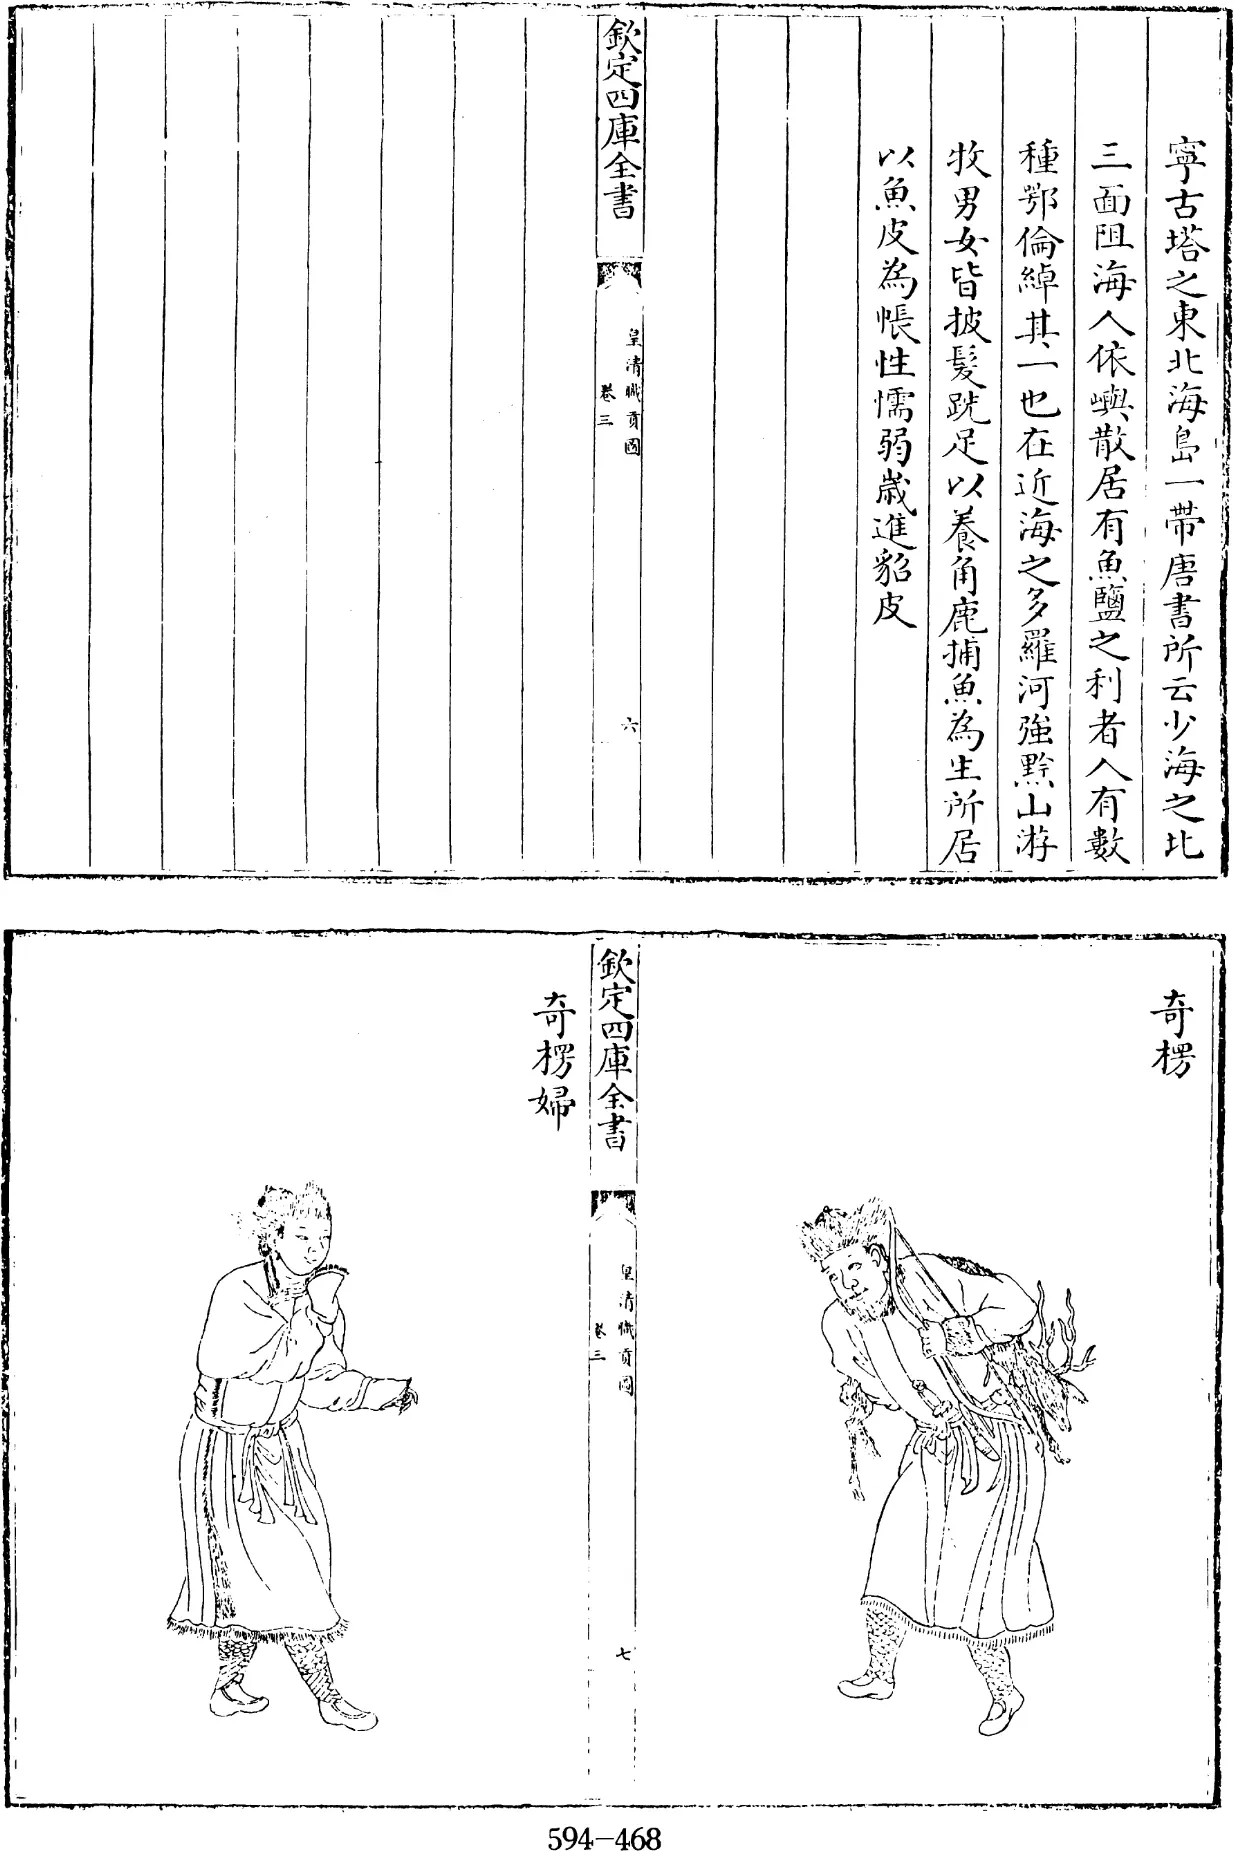 寧古塔之東北海島一帶唐書所云少海之北
三面阻海人依嶼散居有魚鹽之利者人有數
種鄂倫綽其一也在近海之多羅河強黔山游
牧男女皆披髮跣足以養角鹿捕魚為生所居
以魚皮為帳性懦弱歲進貂皮
欽定四庫全書
皇清職貢圖
卷三
六
奇楞
欽定四庫全書
皇清職貢圖
卷三
七
奇楞婦
594-468